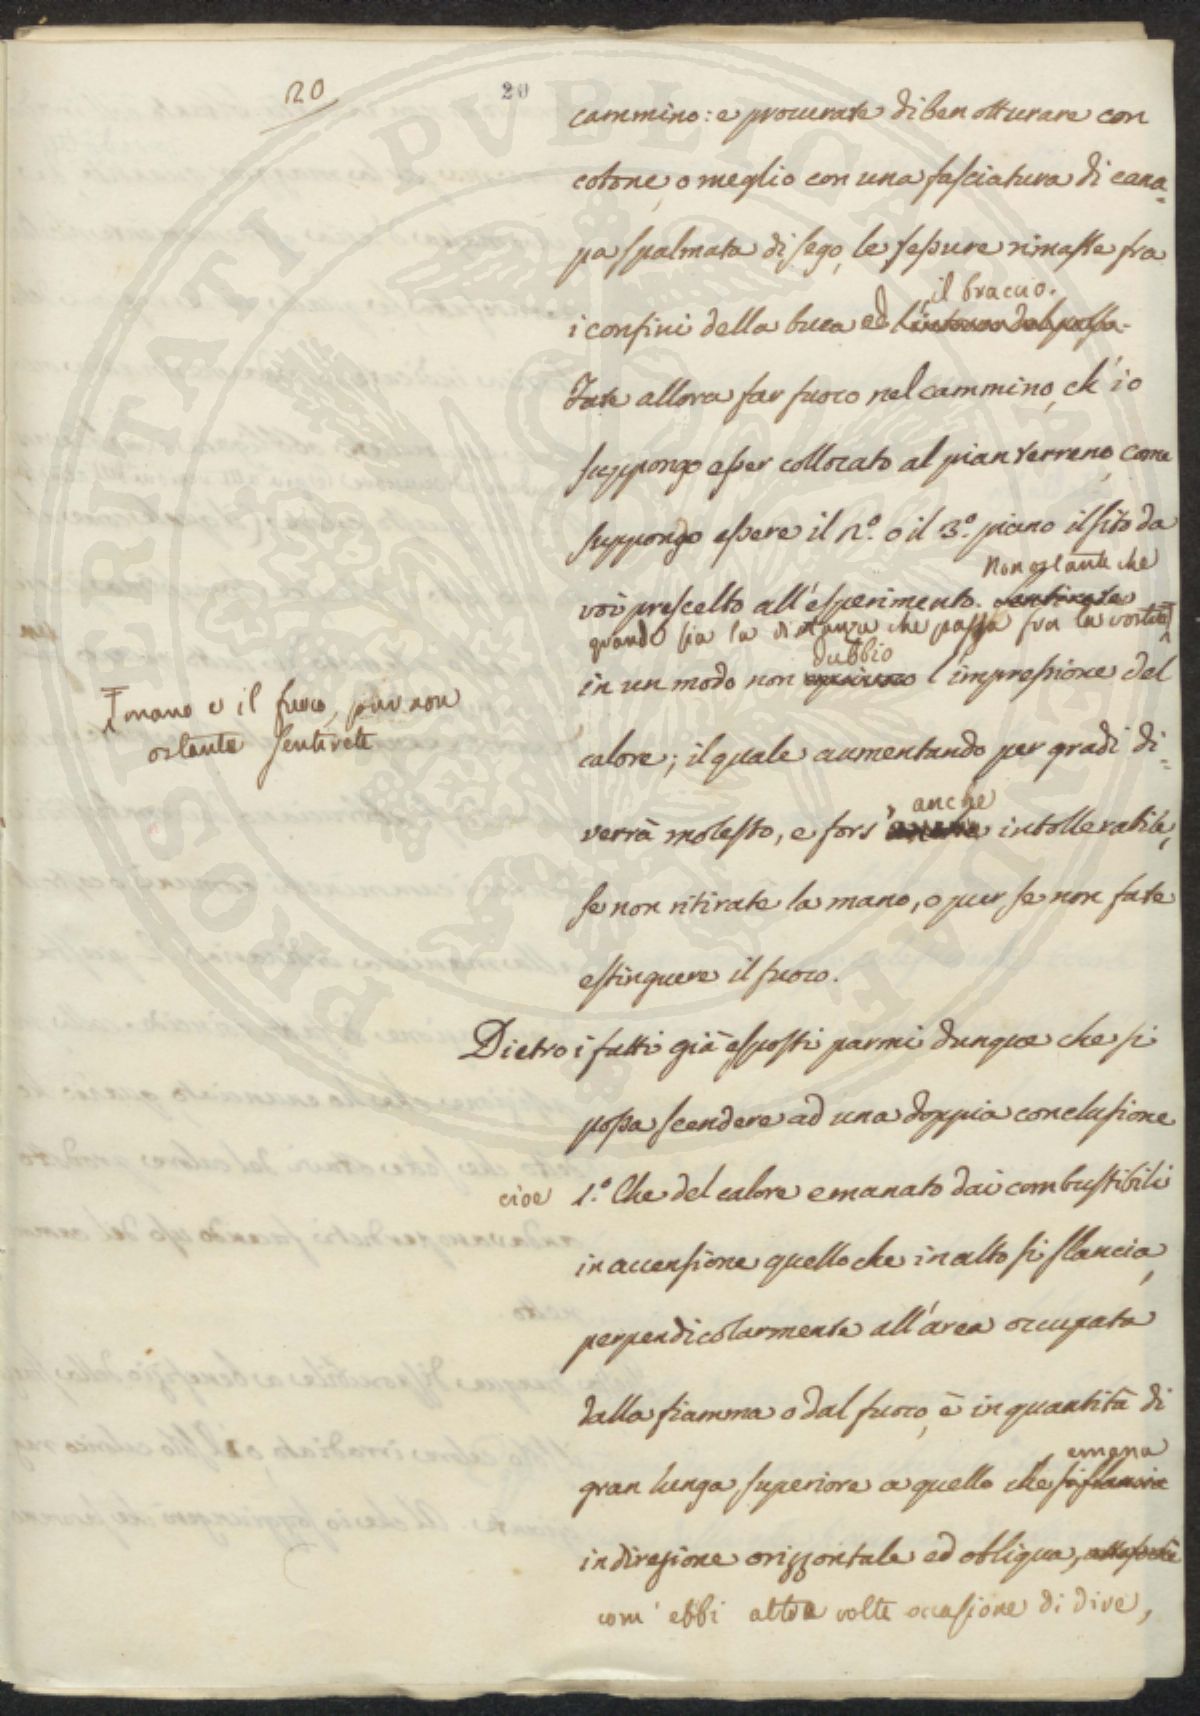 20
20
cammino: e procurate di ben otturare con
cotone, o meglio con una fasciatura di cana=
pa spalmata di sego, le fessure rimaste fra
il braccio.
i confini della buca ed l'intorno del passa-
Fate allora far fuoco nel cammino, ch'io
suppongo esser collocato al pian terreno, come
suppongo essere il 2.º o il 3.º piano il sito da
Non ostante che
voi prescelto all'esperimento. sentirete
grande sia la distanza che passa fra la vostra
dubbio
in un modo non equivoco l'impressione del
mano e il fuoco, pur non
ostante sentirete
calore; il quale aumentando per gradi di=
anche
verrà molesto, e fors' anche intollerabile,
se non ritirate la mano, o pur se non fate
estinguere il fuoco.
Dietro i fatti già esposti parmi dunque che si
possa scendere ad una doppia conclusione
cioè 1.º Che del calore emanato dai combustibili
in accensione quello che in alto si slancia,
perpendicolarmente all'area occupata
dalla fiamma o dal fuoco, è in quantità di
emana
gran lunga superiore a quello che si slancia
in direzione orizzontale ed obliqua,
com' ebbi altre volte occasione di dire,
PROSPERITATI PVBLICAE